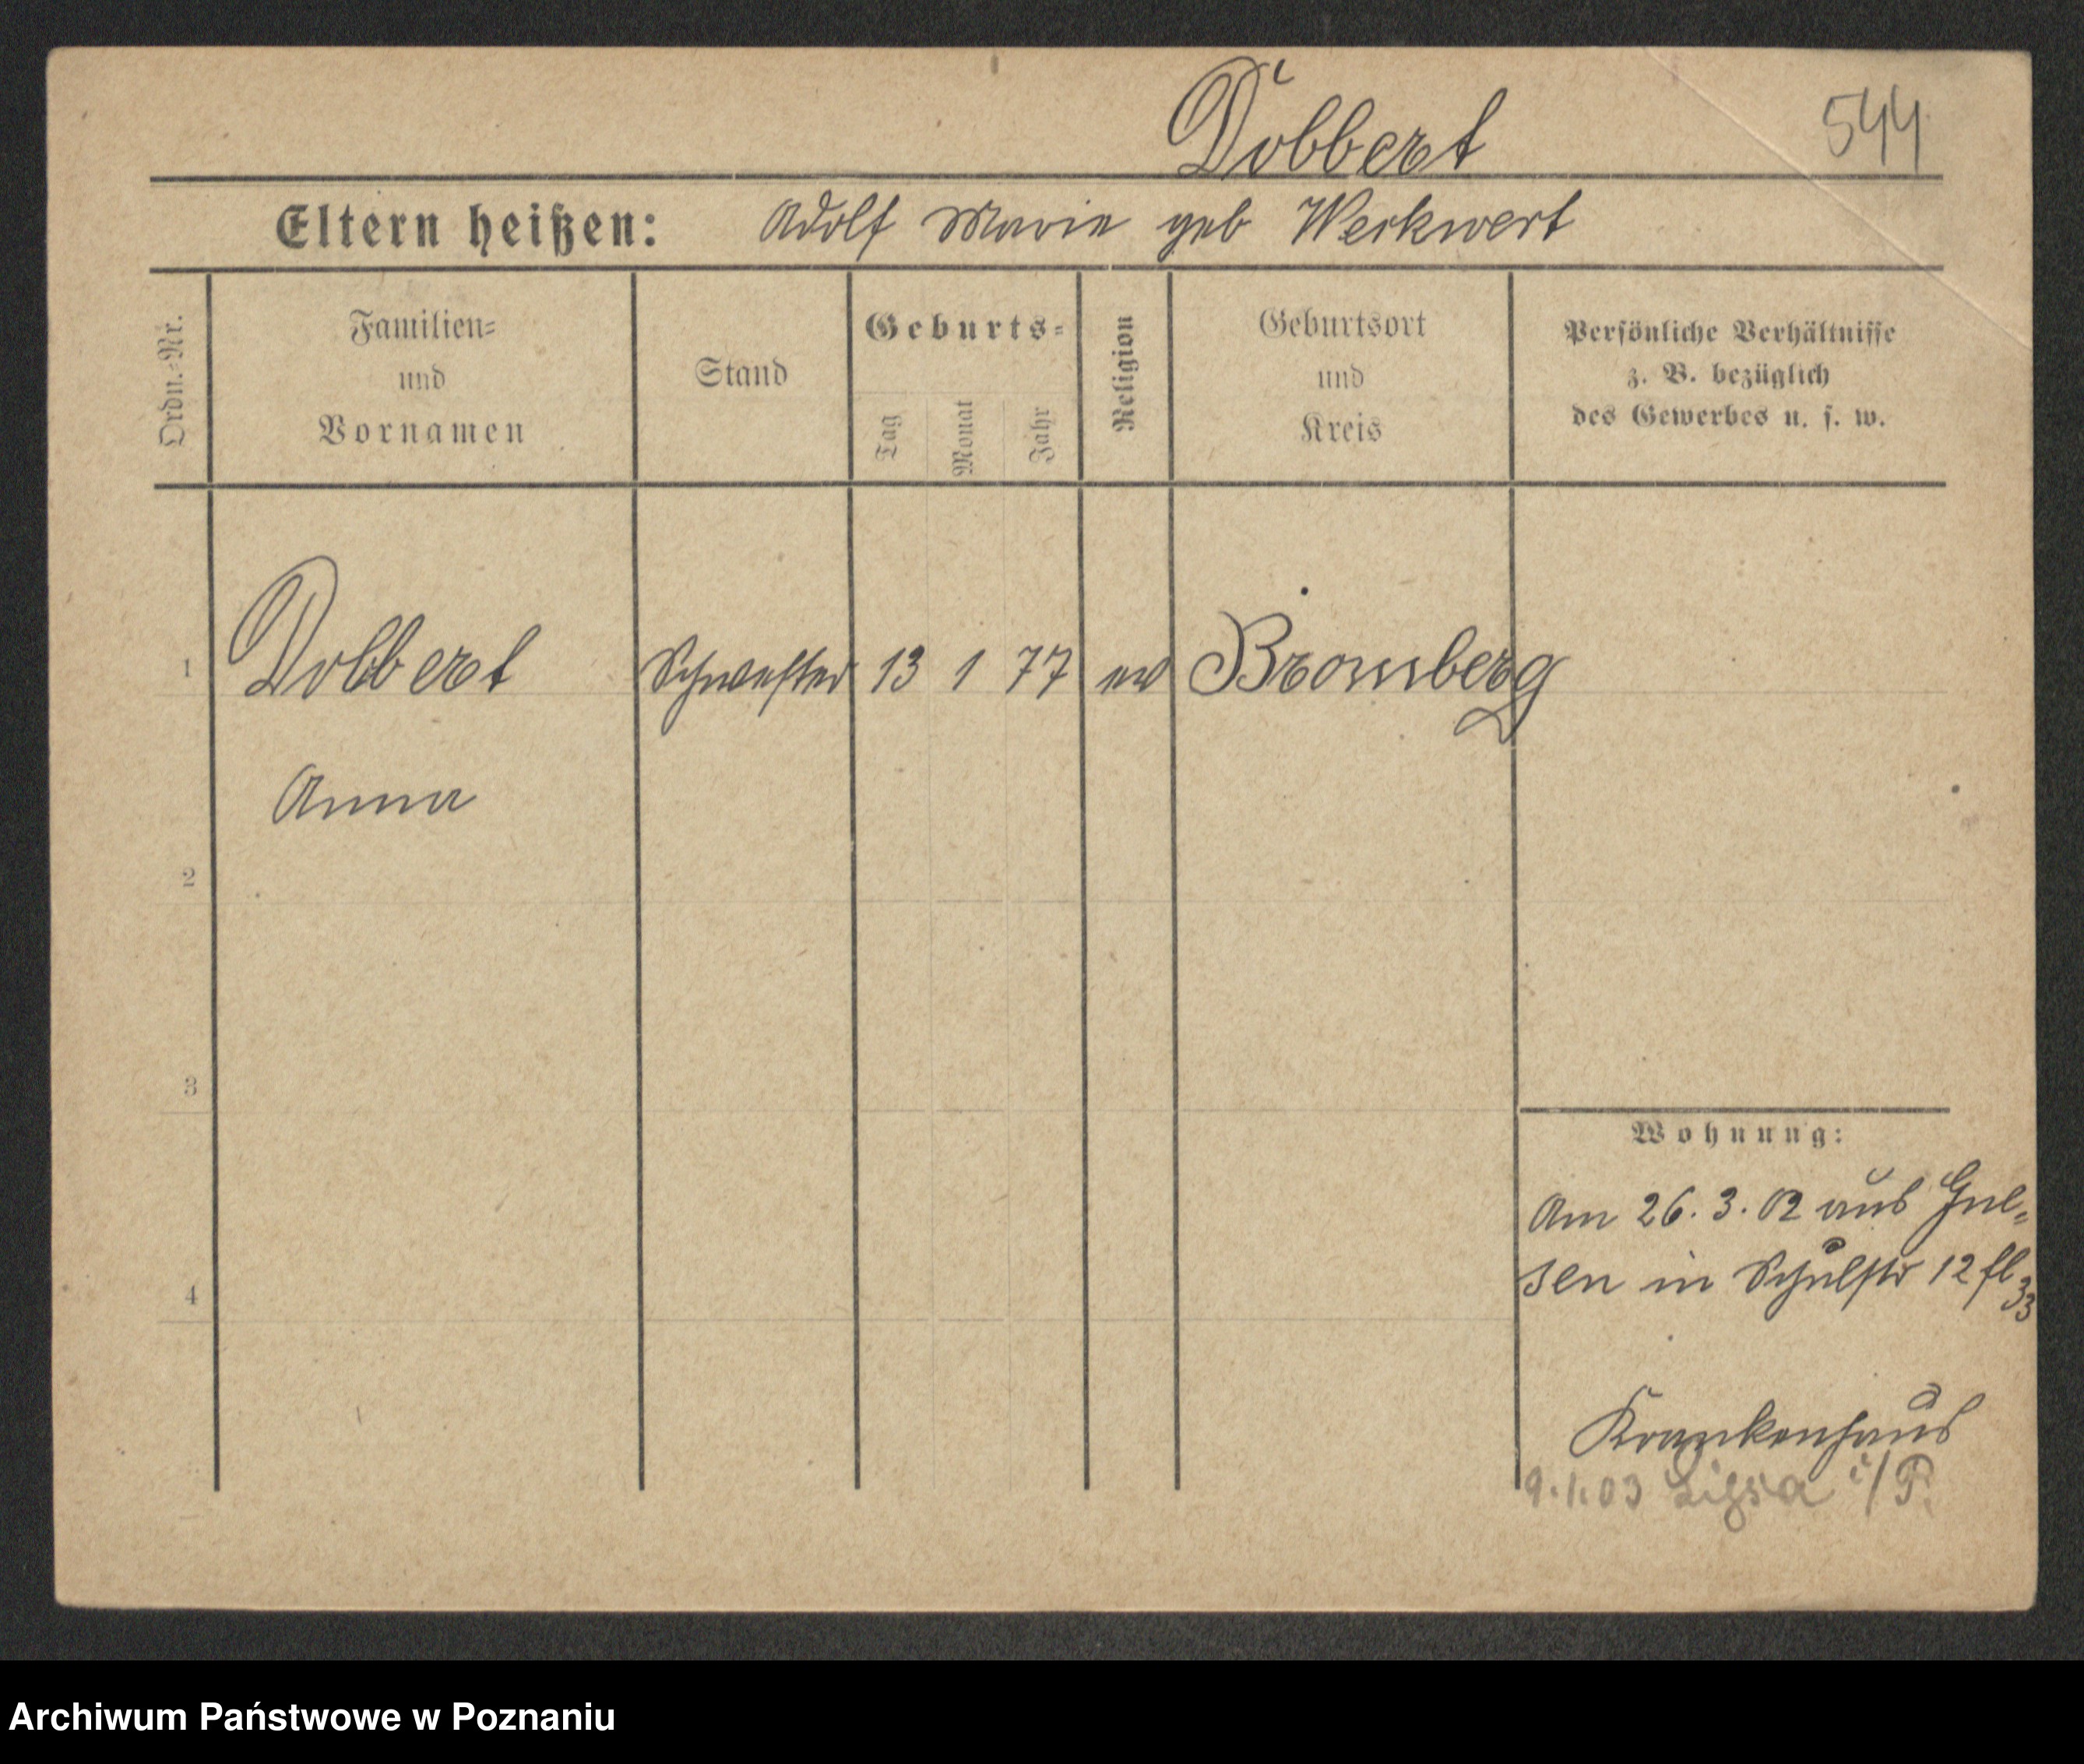 Dobbert
544
Eltern heißen: Adolf Marie geb Werkwert
Ordn.-Nr.
Familien-
und
Vornamen
Stand
Geburts-
Tag
Monat
Jahr
Religion
Geburtsort
und
Kreis
Persönliche Verhältnisse
z. B. bezüglich
des Gewerbes u. s. w.
1 Dobbert Schwester 13 1 77 ev Bromberg
Anna
2
3
4
Wohnung:
Am 26. 3. 02 aus Gul-
sen in Schulstr 12 fl 33
Krankenhaus
9.1.03 Lissa i/P.
Archiwum Państwowe w Poznaniu